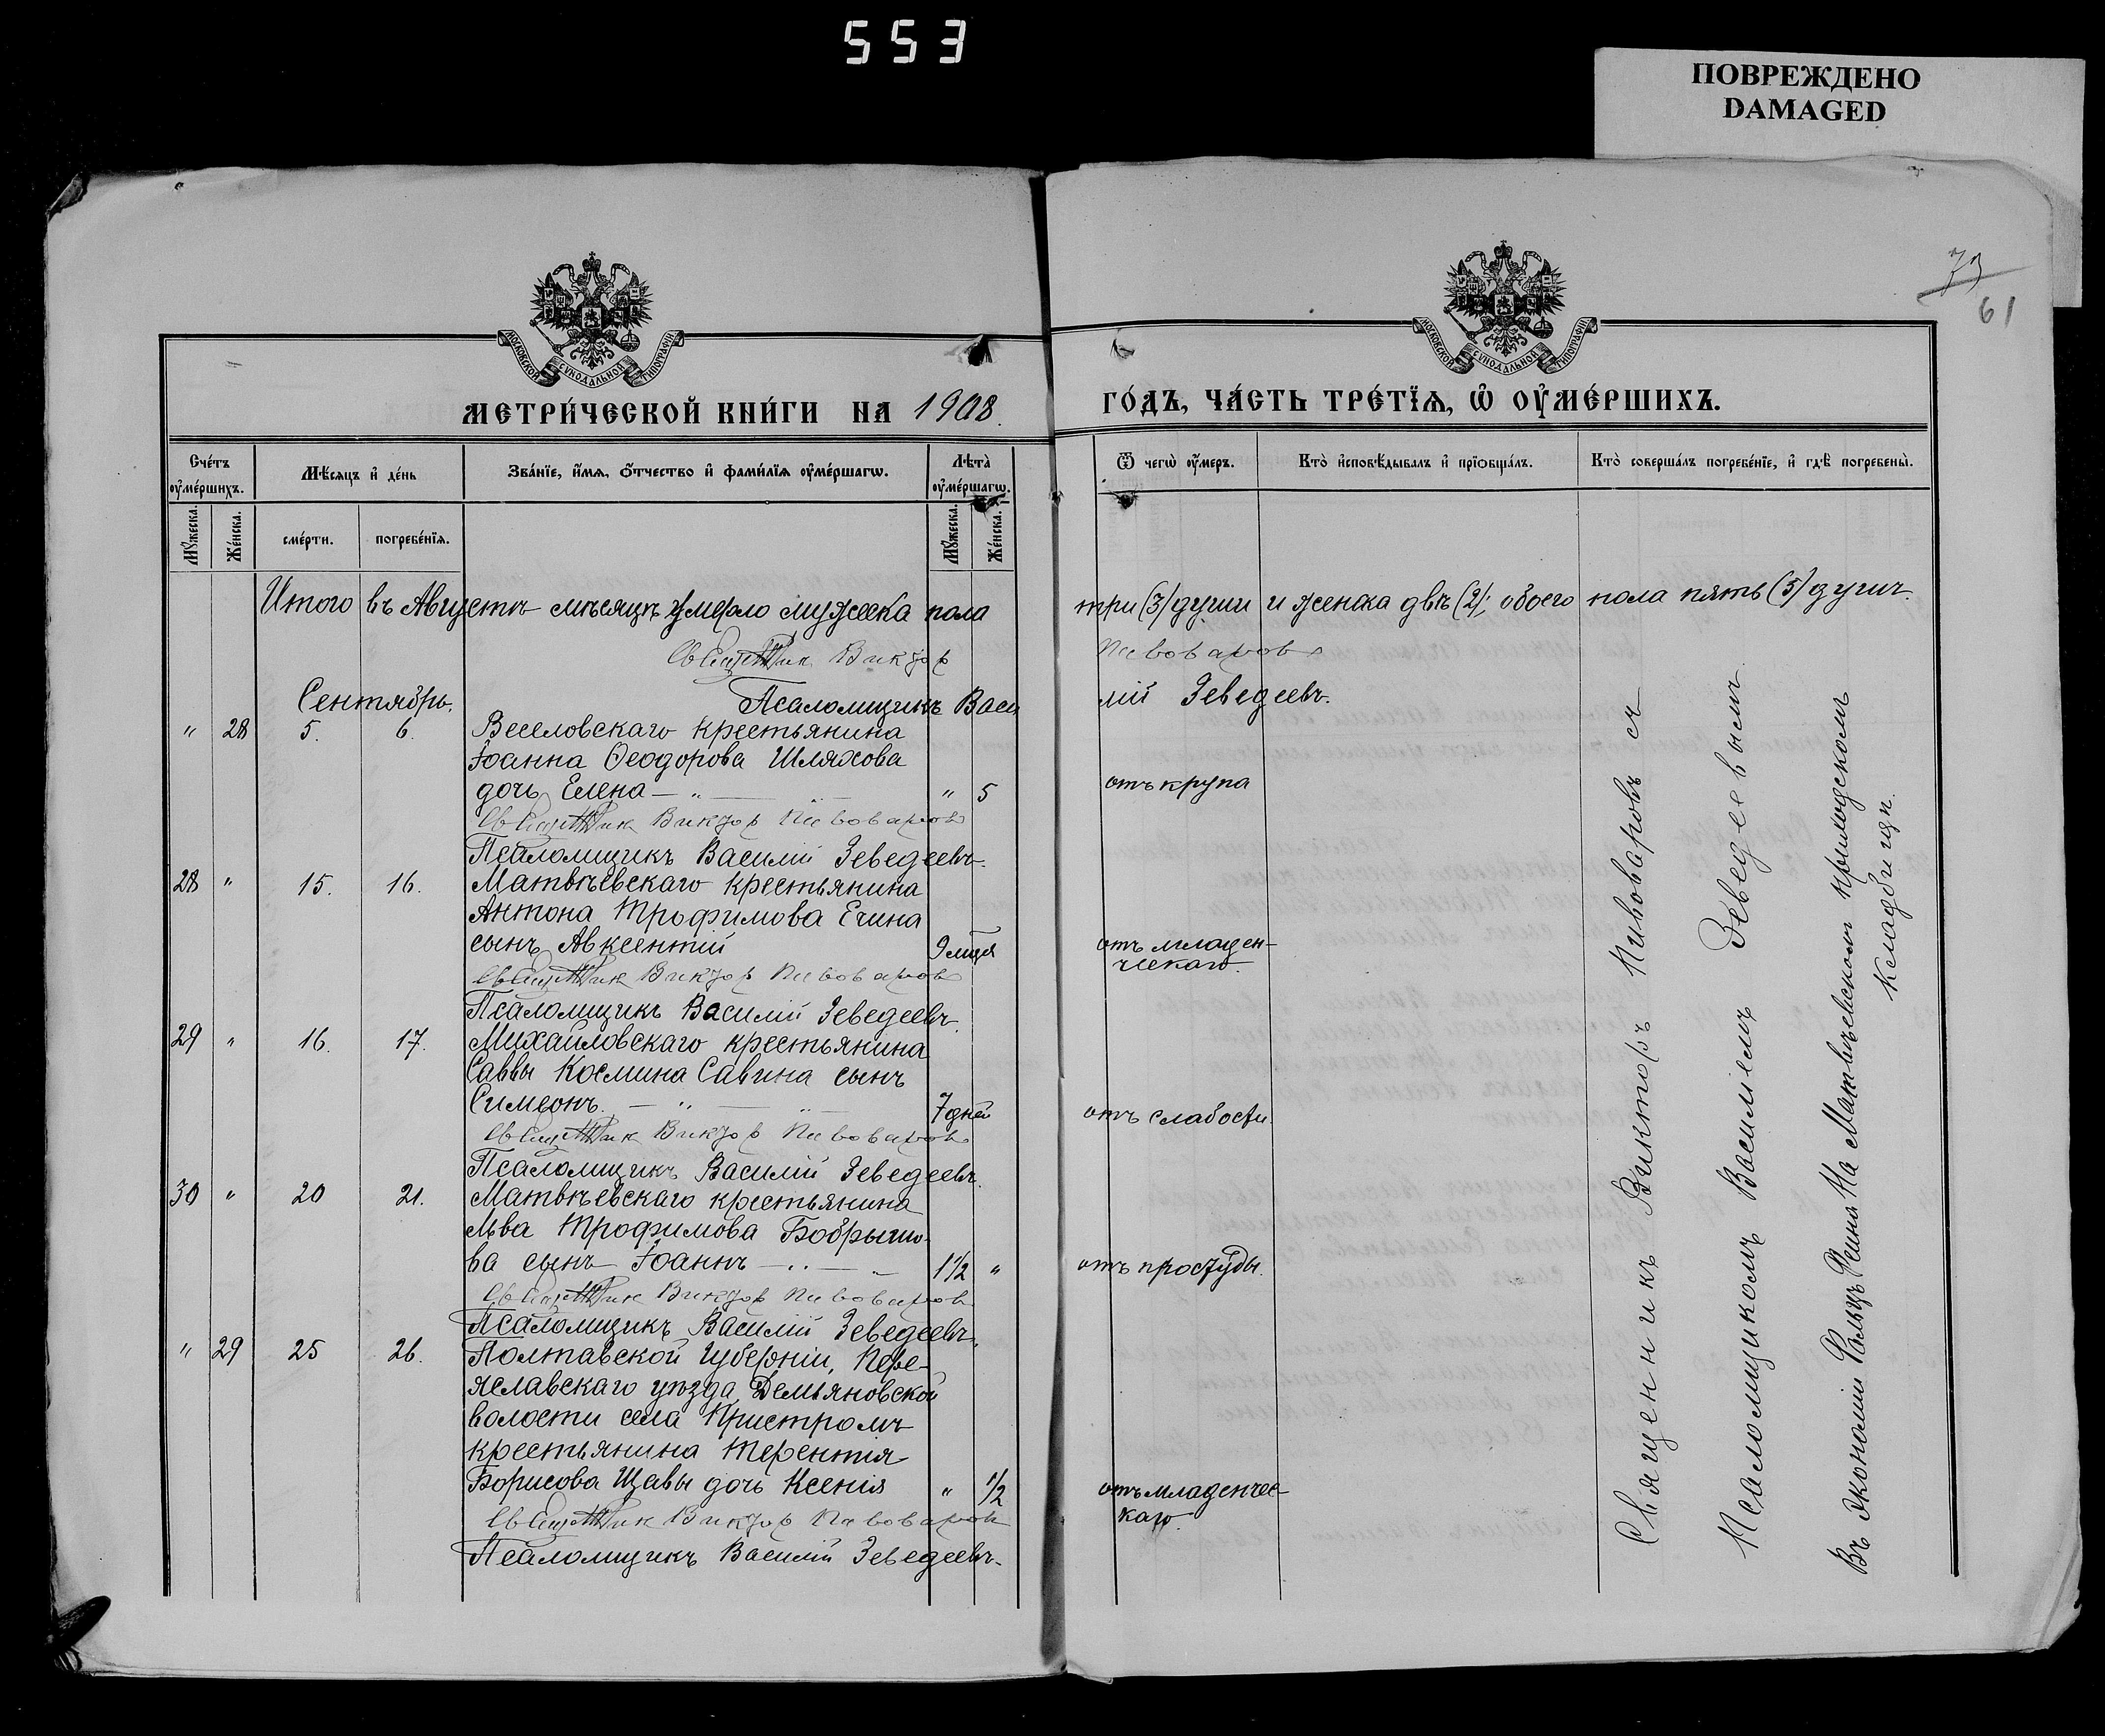 553
ПОВРЕЖДЕНО
DAMAGED
73
61
МОСКОВСКОЙ СѴНОДАЛЬНОЙ ТИПОГРАФІИ
МОСКОВСКОЙ СѴНОДАЛЬНОЙ ТИПОГРАФІИ
МЕТРИ́ЧЕСКОЙ КНИ́ГИ НА 1908.
ГО́ДЪ, ЧА́СТЬ ТРЕ́ТЇѦ, Ѡ ОУ҆МЕ́РШИХЪ.
Сче́тъ оу҆ме́ршихъ.
Мѣ́сяцъ и҆ де́нь
Зва́нїе, и҆́мѧ, ѻ҆́тчество и҆ фами́лїѧ оу҆ме́ршагѡ.
Лѣта̀ оу҆ме́ршагѡ.
Ѿ чегѡ̀ оу҆́меръ.
Кто̀ и҆сповѣ́дывалъ и҆ прїѡбща́лъ.
Кто̀ соверша́лъ погребе́нїе, и҆ гдѣ̀ погребены̀.
Мꙋ́жеска.
Же́нска.
сме́рти.
погребе́нїѧ.
Мꙋ́жеска.
Же́нска.
Итого въ Августѣ мѣсяцѣ умерло мужеска пола три (3) души и женска двѣ (2); обоего пола пять (5) душъ.
Священникъ Викторъ Пивоваровъ
Псаломщикъ Василій Зеведеевъ.
Сентябрь.
" 28 5. 6. Веселовскаго крестьянина
Іоанна Ѳеодорова Шляхова
дочь Елена — " — " 5 отъ крупа
Священникъ Викторъ Пивоваровъ
Псаломщикъ Василій Зеведеевъ.
28 " 15. 16. Матвѣевскаго крестьянина
Антона Трофимова Ечина
сынъ Авксентій 9 мѣся отъ младен-
ческаго.
Священникъ Викторъ Пивоваровъ
Псаломщикъ Василій Зеведеевъ.
29 " 16. 17. Михайловскаго крестьянина
Саввы Космина Савина сынъ
Симеонъ. — " — 7 дней отъ слабости.
Священникъ Викторъ Пивоваровъ
Псаломщикъ Василій Зеведеевъ.
30 " 20 21. Матвѣевскаго крестьянина
Льва Трофимова Бобрышо-
ва сынъ Іоаннъ — 1 1/2 " отъ простуды.
Священникъ Викторъ Пивоваровъ
Псаломщикъ Василій Зеведеевъ.
" 29 25 26. Полтавской губерніи, Пере-
яславскаго уѣзда, Демьяновской
волости села
крестьянина Терентія
Борисова Щавы дочь Ксенія " 1/2 отъ младенчес-
каго.
Священникъ Викторъ Пивоваровъ
Псаломщикъ Василій Зеведеевъ.
Священникъ Викторъ Пивоваровъ съ
Псаломщикомъ Василіемъ Зеведеевымъ
Въ экономіи Фальцъ-Фейна на Матвѣевскомъ приходскомъ
кладбищѣ.